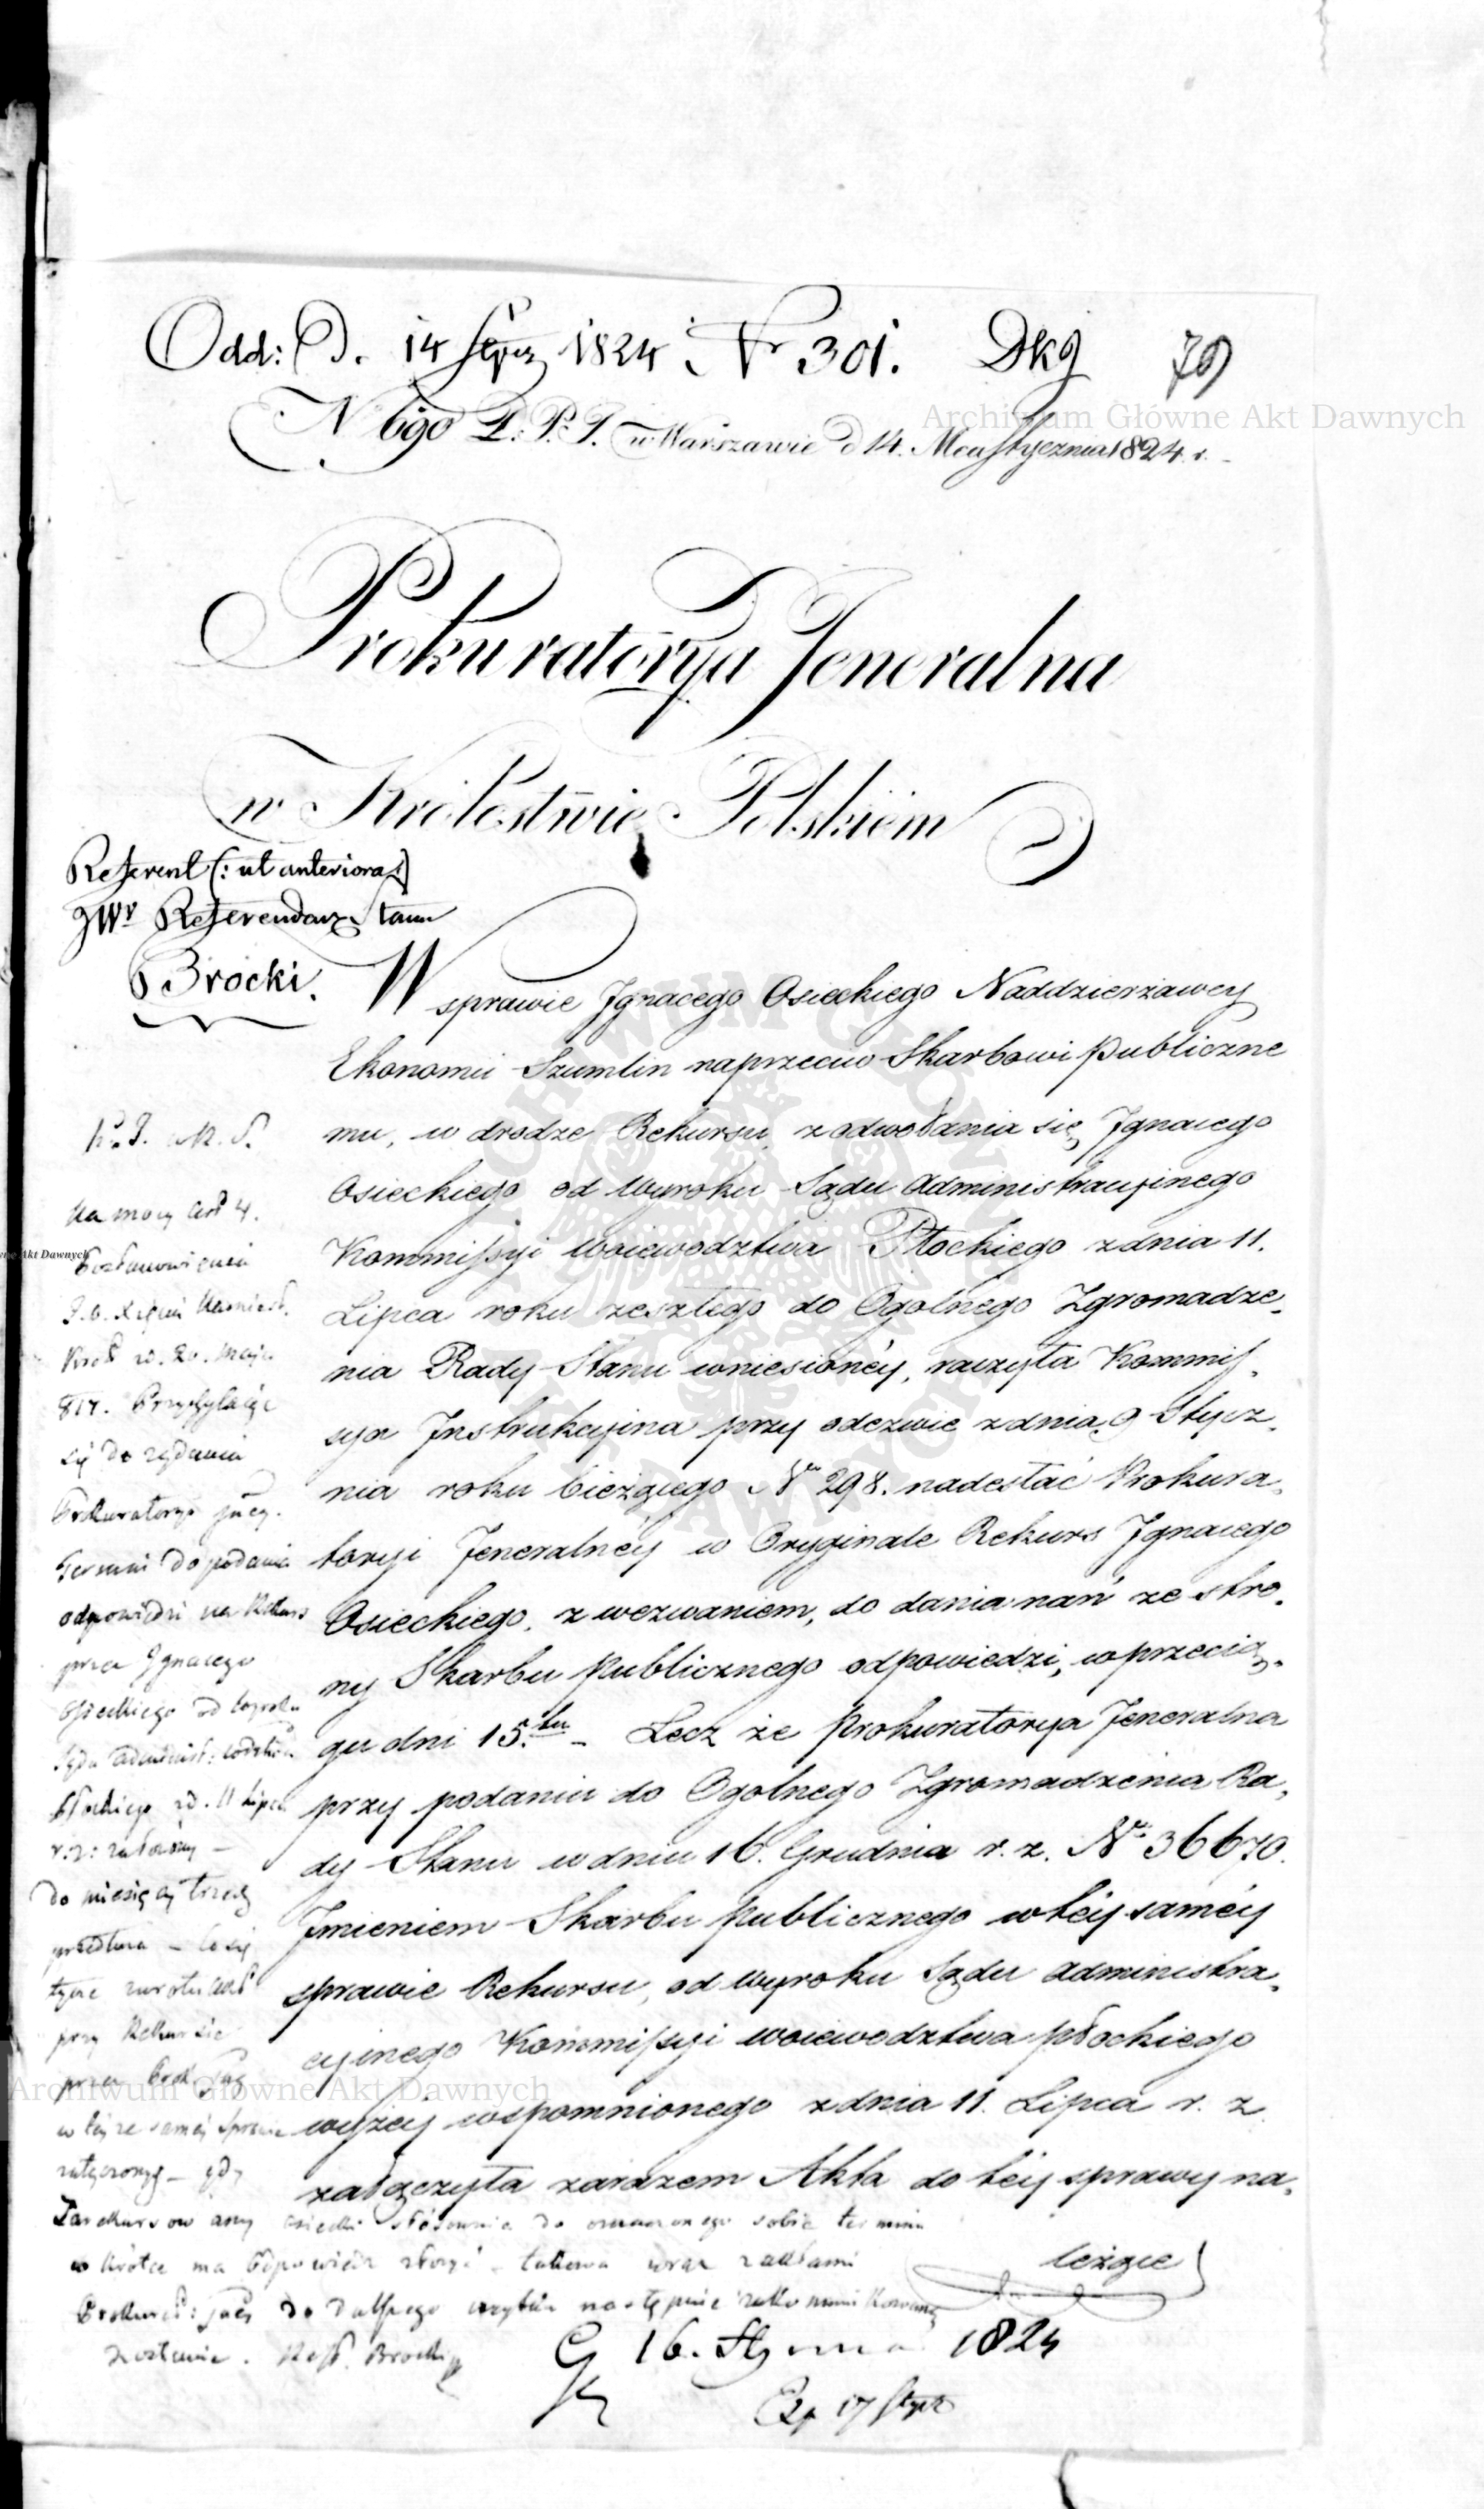 Odd: D. 14 Stycz 1824 Nr 301. Dkg 79
N 690 L: P: J. w Warszawie d 14. Mca Stycznia 1824. r.
Prokuratorya Jeneralna
w Królestwie Polskiém
Referent (: ut anteriora :)
JWr Referendarz Stanu
Brocki.
W sprawie Jgnacego Osieckiego Naddzierżawcy
Ekonomii Szumlin naprzeciw Skarbowi Publiczne
mu, w drodze Rekursu, z odwołania się Jgnacego
Osieckiego od Wyroku Sądu Administracyinego
Kommissyi Woiewodztwa Płockiego z dnia 11.
Lipca roku zeszłego do Ogolnego Zgromadze-
nia Rady Stanu wniesionéy, raczyła Kommis-
sya Jnstrukcyina przy odezwie z dnia 9 Stycz-
nia roku bieżącego Nro 298. nadesłać Prokura-
toryi Jeneralnéy w Oryginale Rekurs Jgnacego
Osieckiego, z wezwaniem, do dania nań ze stro-
ny Skarbu Publicznego odpowiedzi, w przecią-
gu dni 15.tu – Lecz że Prokuratorya Jeneralna
przy podaniu do Ogolnego Zgromadzenia Ra-
dy Stanu w dniu 16. Grudnia r. z. Nro 36670.
Jmieniem Skarbu Publicznego w téy saméy
sprawie Rekursu, od Wyroku Sądu Administra-
cyinego Kommissyi Woiewodztwa Płockiego
wyżéy wspomnionego z dnia 11. Lipca r. z.
załączyła zarazem Akta do téy sprawy na-
leżące
Na mocy Art 4.
Postanowienia
J. O. Xięcia Namiest.
Król z d. 20. Maja
817. Przychylając
się do żądania
Prokuratoryi Jney.
Termin do podania
odpowiedzi na Rekurs
przez Jgnacego
Osieckiego od Wyroku
Sądu Administ:
Płockiego z d. 11 Lipca
r: z: założony –
do miesięcy trzech
przedłuża – co się
tycze zwrotu Akt
przy Rekursie
przez Prok. Jną
w téyże saméy sprawie
załączonych – gdy
Zarekursowany Osiecki stósownie do oznaczonego sobie terminu
w krótce ma Odpowiedź złożyć – takowa wraz z aktami
Prokurat: Jney do dalszego użytku następnie zakommunikowaną
zostanie. Ref. Brocki
16. Stycznia 1824
Exp 17 Stycz